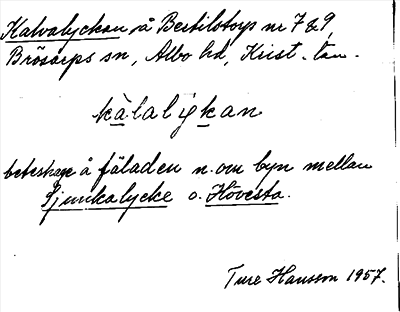 Kalvalyckan på Bertilstorp nr 7 & 9,
Brösarps sn, Albo hd, Krist. län.
kàlalýkan
beteshage å fäladen n. om byn mellan
Sjunkalycke o. Hovesta.
Ture Hansson 1957.